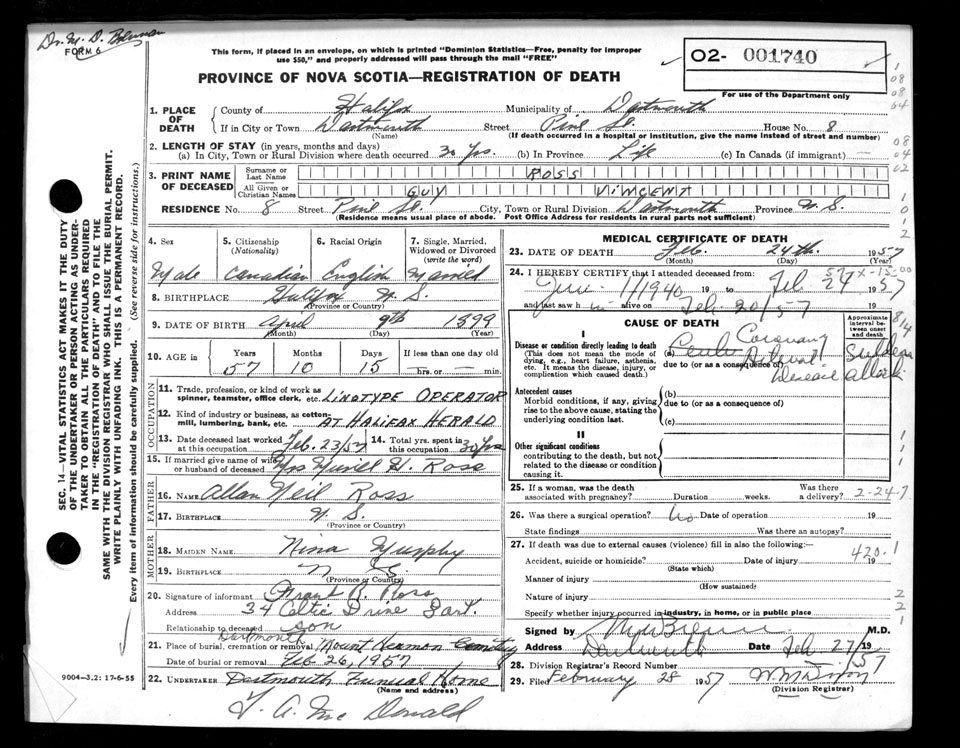 Dr. M. D. Brennan
FORM 6
This form, if placed in an envelope, on which is printed "Dominion Statistics—Free, penalty for improper
use $50," and properly addressed will pass through the mail "FREE"
O2- 001740
For use of the Department only
PROVINCE OF NOVA SCOTIA—REGISTRATION OF DEATH
1. PLACE OF DEATH
County of Halifax Municipality of Dartmouth
If in City or Town Dartmouth Street Pine St. House No. 8
(Name) (If death occurred in a hospital or institution, give the name instead of street and number)
2. LENGTH OF STAY (in years, months and days)
(a) In City, Town or Rural Division where death occurred 30 Yrs. (b) In Province Life (c) In Canada (if immigrant) —
3. PRINT NAME OF DECEASED
Surname or Last Name ROSS
All Given or Christian Names GUY VINCENT
RESIDENCE No. 8 Street Pine St. City, Town or Rural Division Dartmouth Province N.S.
(Residence means usual place of abode. Post Office Address for residents in rural parts not sufficient)
4. Sex Male
5. Citizenship (Nationality) Canadian
6. Racial Origin English
7. Single, Married, Widowed or Divorced (write the word) Married
8. BIRTHPLACE Halifax N.S.
(Province or Country)
9. DATE OF BIRTH April 9th 1899
(Month) (Day) (Year)
10. AGE in Years 57 Months 10 Days 15 If less than one day old
hrs. or — min.
OCCUPATION
11. Trade, profession, or kind of work as
spinner, teamster, office clerk, etc. LINOTYPE OPERATOR
12. Kind of industry or business, as cotton-
mill, lumbering, bank, etc. AT HALIFAX HERALD
13. Date deceased last worked at this occupation Feb. 23/57
14. Total yrs. spent in this occupation 30 Yrs
15. If married give name of wife
or husband of deceased Mrs Muriel H. Ross
FATHER
16. NAME Allan Neil Ross
17. BIRTHPLACE N.S.
(Province or Country)
MOTHER
18. MAIDEN NAME Nina Murphy
19. BIRTHPLACE N S.
(Province or Country)
20. Signature of informant Grant B. Ross
Address 34 Celtic Drive Dart.
Relationship to deceased son
Dartmouth
21. Place of burial, cremation or removal Mount Hermon Cemetery
Date of burial or removal Feb 26, 1957
22. UNDERTAKER Dartmouth Funeral Home
(Name and address)
T. A. Mc Donald
MEDICAL CERTIFICATE OF DEATH
23. DATE OF DEATH Feb. 24th. 1957
(Month) (Day) (Year)
24. I HEREBY CERTIFY that I attended deceased from:
June 1/1940 19 to Feb 24 1957
and last saw h im alive on Feb 20/57 19
CAUSE OF DEATH
Approximate interval between onset and death
I
Disease or condition directly leading to death
(This does not mean the mode of
dying, e.g., heart failure, asthenia,
etc. It means the disease, injury, or
complication which caused death.)
(a) Coronary
due to (or as a consequence of)
Sudden
attack
Antecedent causes
Morbid conditions, if any, giving
rise to the above cause, stating the
underlying condition last.
(b)
due to (or as a consequence of)
(c)
II
Other significant conditions
contributing to the death, but not
related to the disease or condition
causing it.
25. If a woman, was the death
associated with pregnancy? Duration weeks. Was there a delivery? 2-24-7
26. Was there a surgical operation? No Date of operation 19
State findings Was there an autopsy?
27. If death was due to external causes (violence) fill in also the following:—
Accident, suicide or homicide? Date of injury 19
(State which)
420.1
Manner of injury
(How sustained)
Nature of injury
Specify whether injury occurred in industry, in home, or in public place
Signed by M.D. Brennan M.D.
Address Dartmouth Date Feb 27/57 19
28. Division Registrar's Record Number
29. Filed February 28 1957 W.M. Dixon
(Division Registrar)
SEC. 14—VITAL STATISTICS ACT MAKES IT THE DUTY
OF THE UNDERTAKER OR PERSON ACTING AS UNDER-
TAKER TO OBTAIN ALL THE PARTICULARS REQUIRED
IN THE "REGISTRATION OF DEATH" AND TO FILE THE
SAME WITH THE DIVISION REGISTRAR WHO SHALL ISSUE THE BURIAL PERMIT.
WRITE PLAINLY WITH UNFADING INK. THIS IS A PERMANENT RECORD.
Every item of information should be carefully supplied. (See reverse side for instructions.)
9004—3.2: 17-6-55